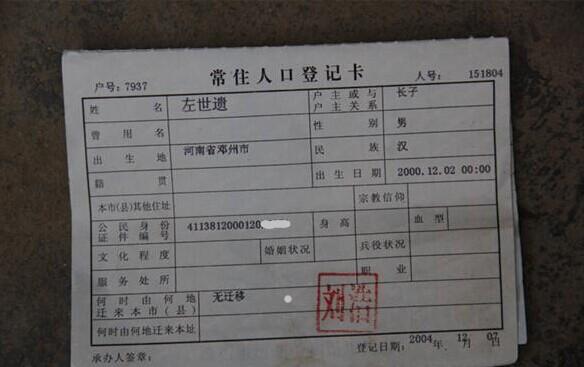 常住人口登记卡
户号: 7937 人号: 151804
姓名 左世遗 户主或与户主关系 长子
曾用名 性别 男
出生地 河南省邓州市 民族 汉
籍贯 出生日期 2000.12.02 00:00
本市(县)其他住址 宗教信仰
公民身份证件编号 4113812000120 身高 血型
文化程度 婚姻状况 兵役状况
服务处所 职业
何时由何地迁来本市(县) 无迁移
何时由何地迁来本址
承办人签章: 登记日期: 2004年12月07日